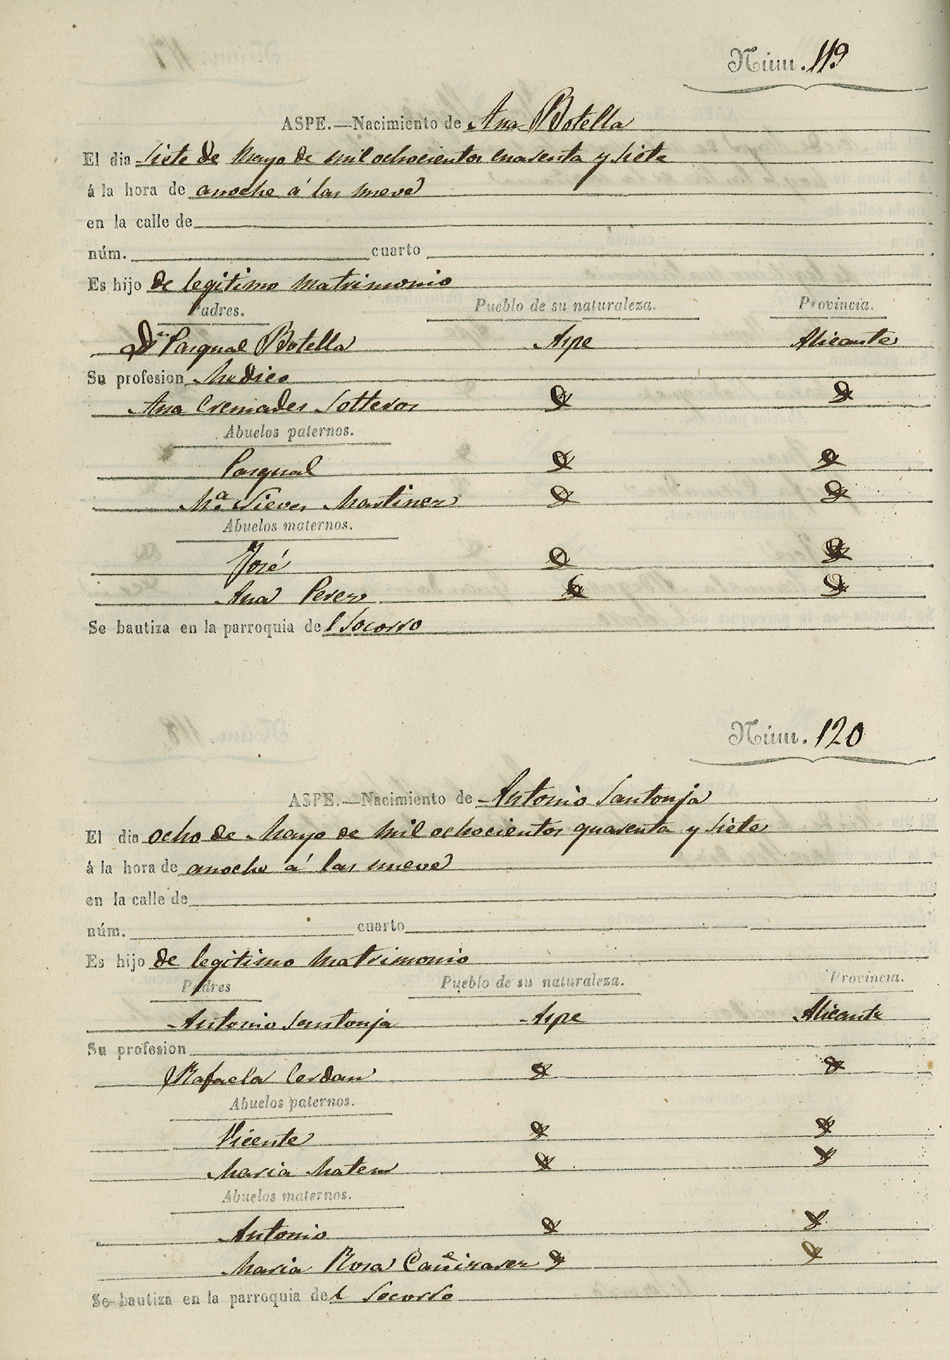 Núm. 119
ASPE.—Nacimiento de Ana Botella
El dia siete de Mayo de mil ochocientos cuarenta y siete
á la hora de anoche á las nueve
en la calle de
núm. cuarto
Es hijo de legitimo matrimonio
Padres. Pueblo de su naturaleza. Provincia.
Dn Pasqual Botella Aspe Alicante
Su profesion Medico
Ana Cremades
Abuelos paternos.
Pasqual
Mª Nieves Martinez
Abuelos maternos.
José
Ana Perez
Se bautiza en la parroquia del Socorro
Núm. 120
ASPE.—Nacimiento de Antonio Santonja
El dia ocho de Mayo de mil ochocientos quarenta y siete
á la hora de anoche á las nueve
en la calle de
núm. cuarto
Es hijo de legitimo matrimonio
Padres Pueblo de su naturaleza. Provincia.
Antonio Santonja Aspe Alicante
Su profesion
Rafaela Cerdan
Abuelos paternos.
Vicente
Maria
Abuelos maternos.
Antonio
Maria Rosa Cañizares
Se bautiza en la parroquia del Socorro